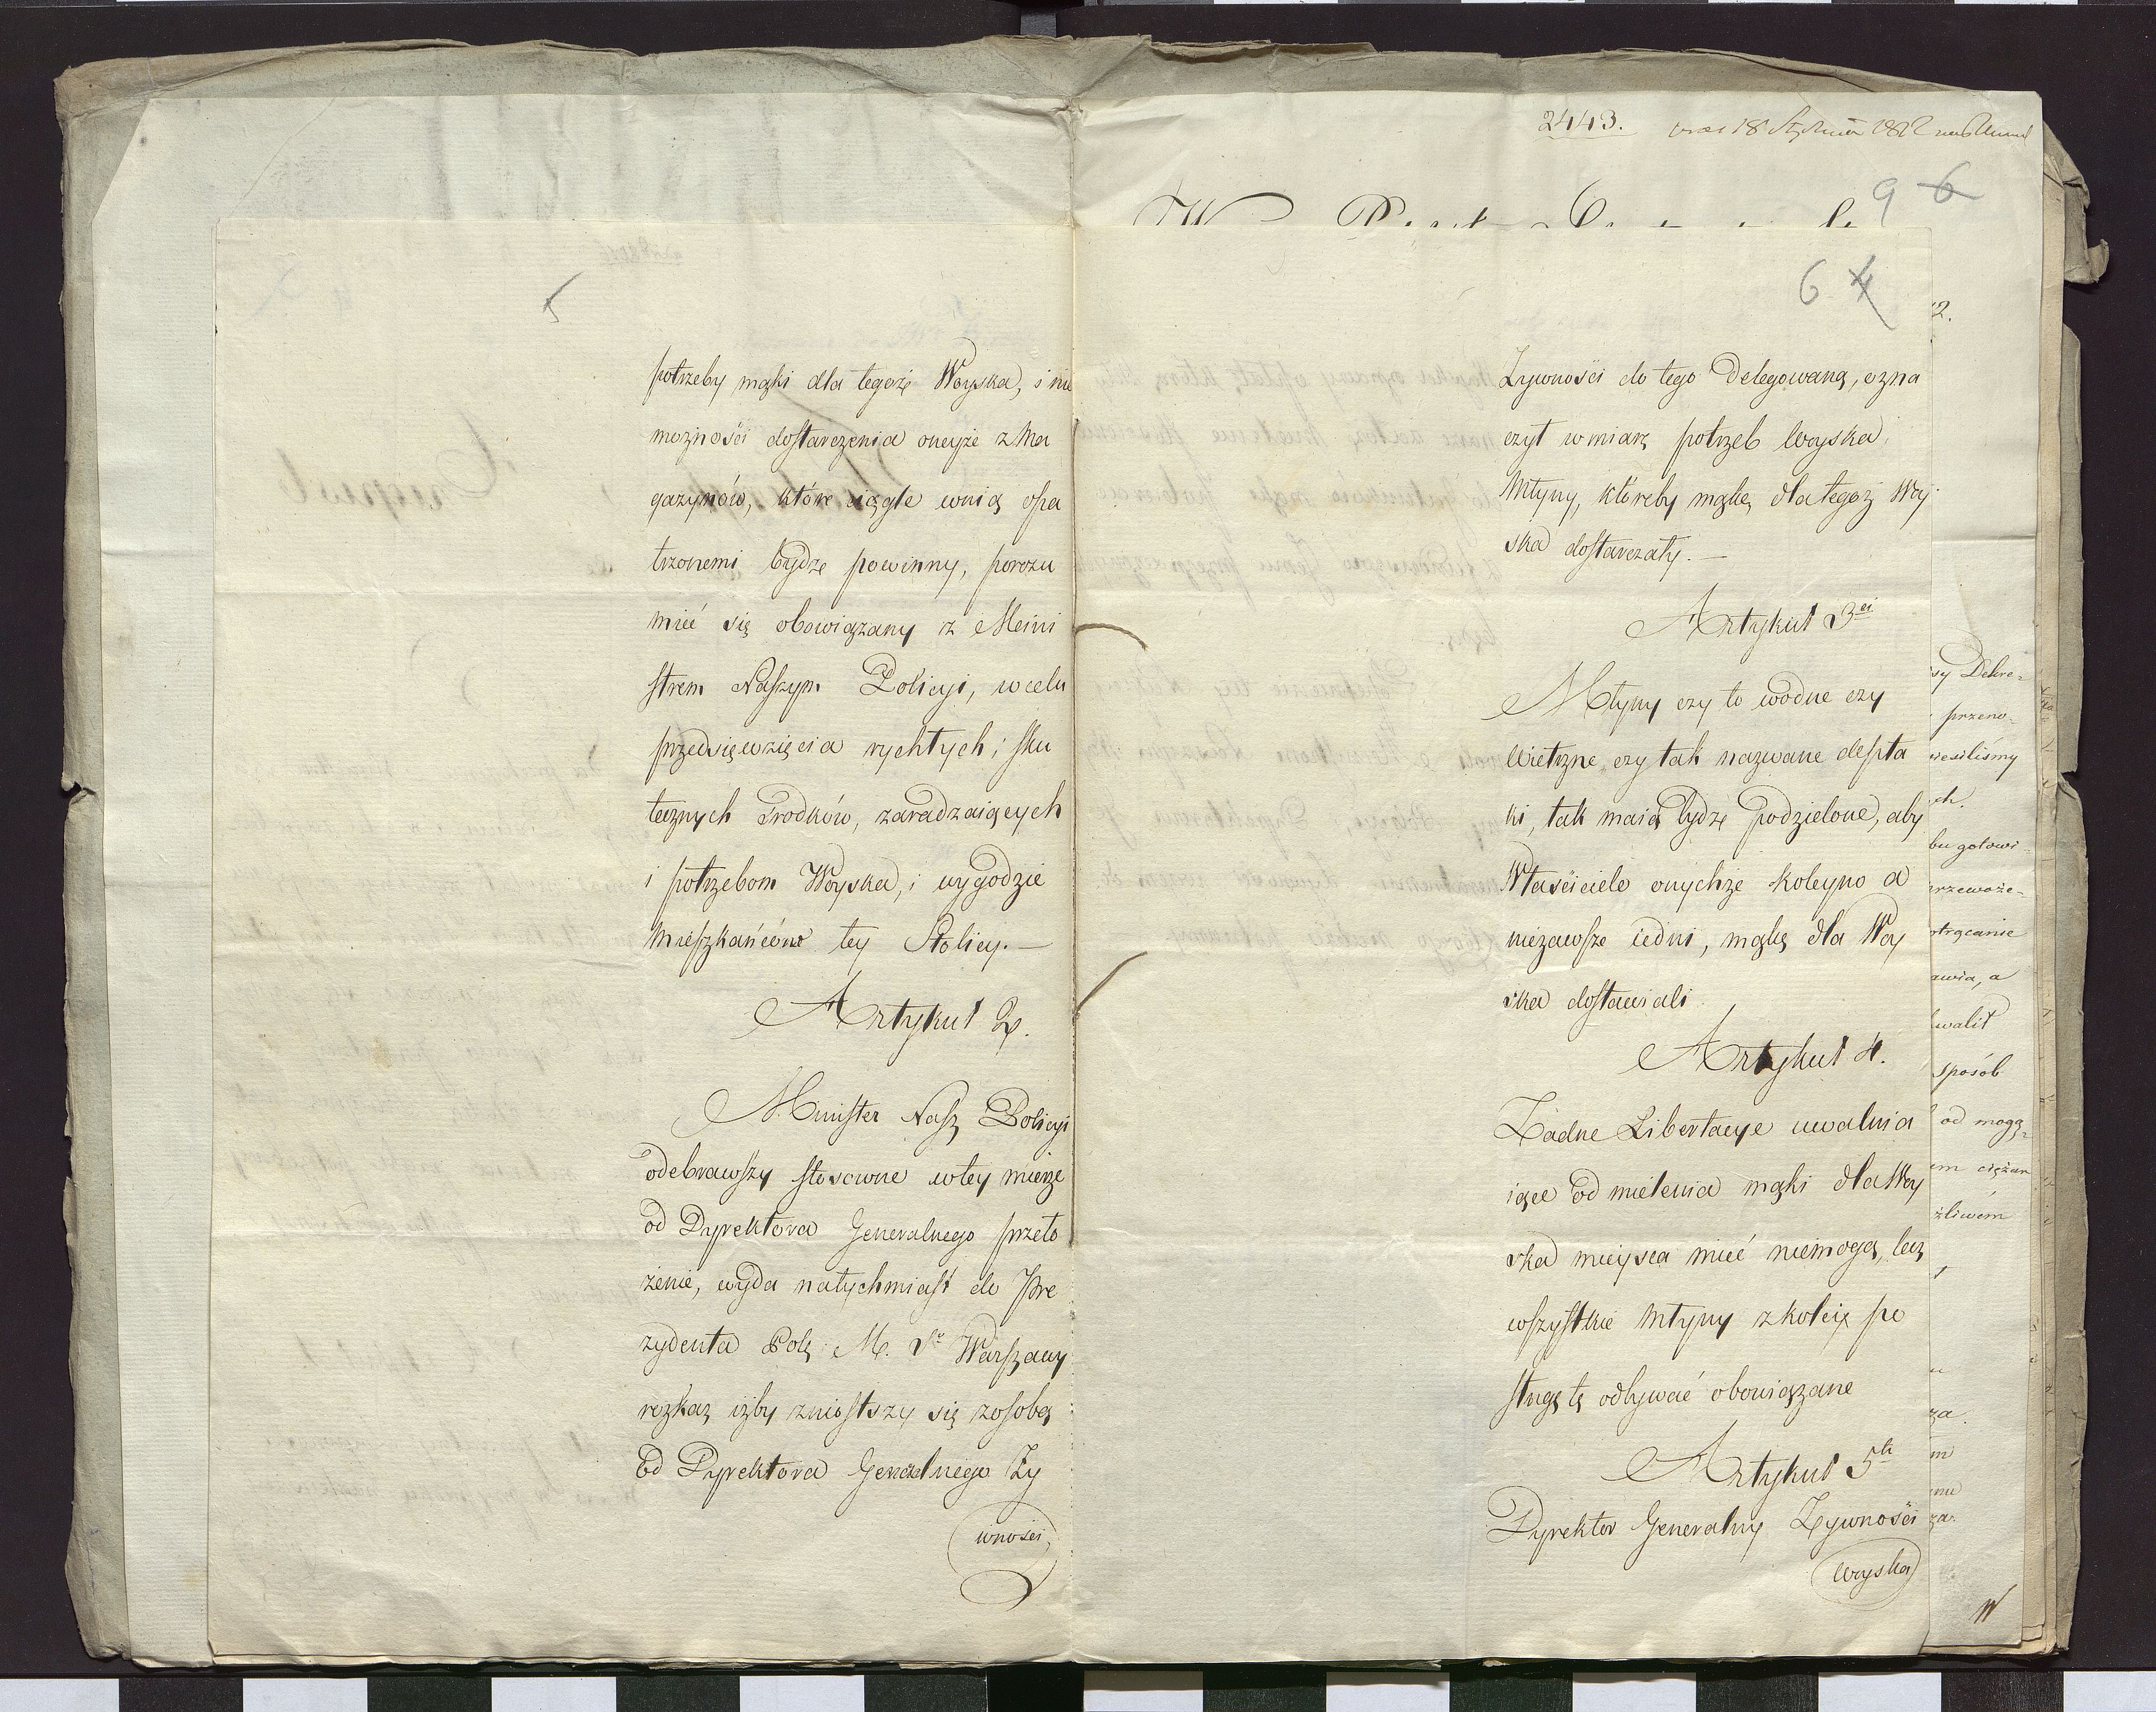 5
potrzeby mąki dla tegoż Woyska, i nie
możności dostarczenia oneyże z Ma
gazynów, które ciągle wnią opa
trzonemi bydź powinny, porozu
mieć się obowiązany z Mini
strem Naszym Policyi, wcelu
przedsięwzięcia rychłych i sku
tecznych środków, zaradzaiących
i potrzebom Woyska, i wygodzie
Mieszkańców tey Stolicy. —
Artykuł 2.
Minister Nasz Policyi
odebrawszy stosowne wtey mierze
od Dyrektora Generalnego przeło
żenie, wyda natychmiast do Pre
zydenta Polę M. S° Warszawy
rozkaz iżby zniosłszy się zosobą
Od Dyrektora Generalnego Ży
wności,
2443. 18 Stycznia
9 6
6 4
Żywności do tego Delegowaną, ozna
czył wmiarę potrzeb Woyska
Młyny, któreby mąkę dla tegoż Woy
ska dostarczały. —
Artykuł 3ci
Młyny czy to wodne czy
Wietrzne, czy tak nazwane depta
ki, tak maią bydź podzielone, aby
Właściciele onychże koleyno a
niezawsze iedni, mąkę dla Woy
ska dostawiali
Artykuł 4.
Żadne Libertacye uwalnia
iące od mielenia mąki dla Woy
ska mieysca mieć niemogą, lecz
wszystkie Młyny z kolei po
sługę tę odbywać obowiązane
Artykuł 5ti
Dyrektor Generalny Żywności
Woyska
2.
sy Dekre-
przeno-
wiesiliśmy
ch.
bu gotowi-
przewoże-
strącanie
awia, a
walił
sposób
od mogą-
em ciężar
żliwém
za.
m
mu
za.
W